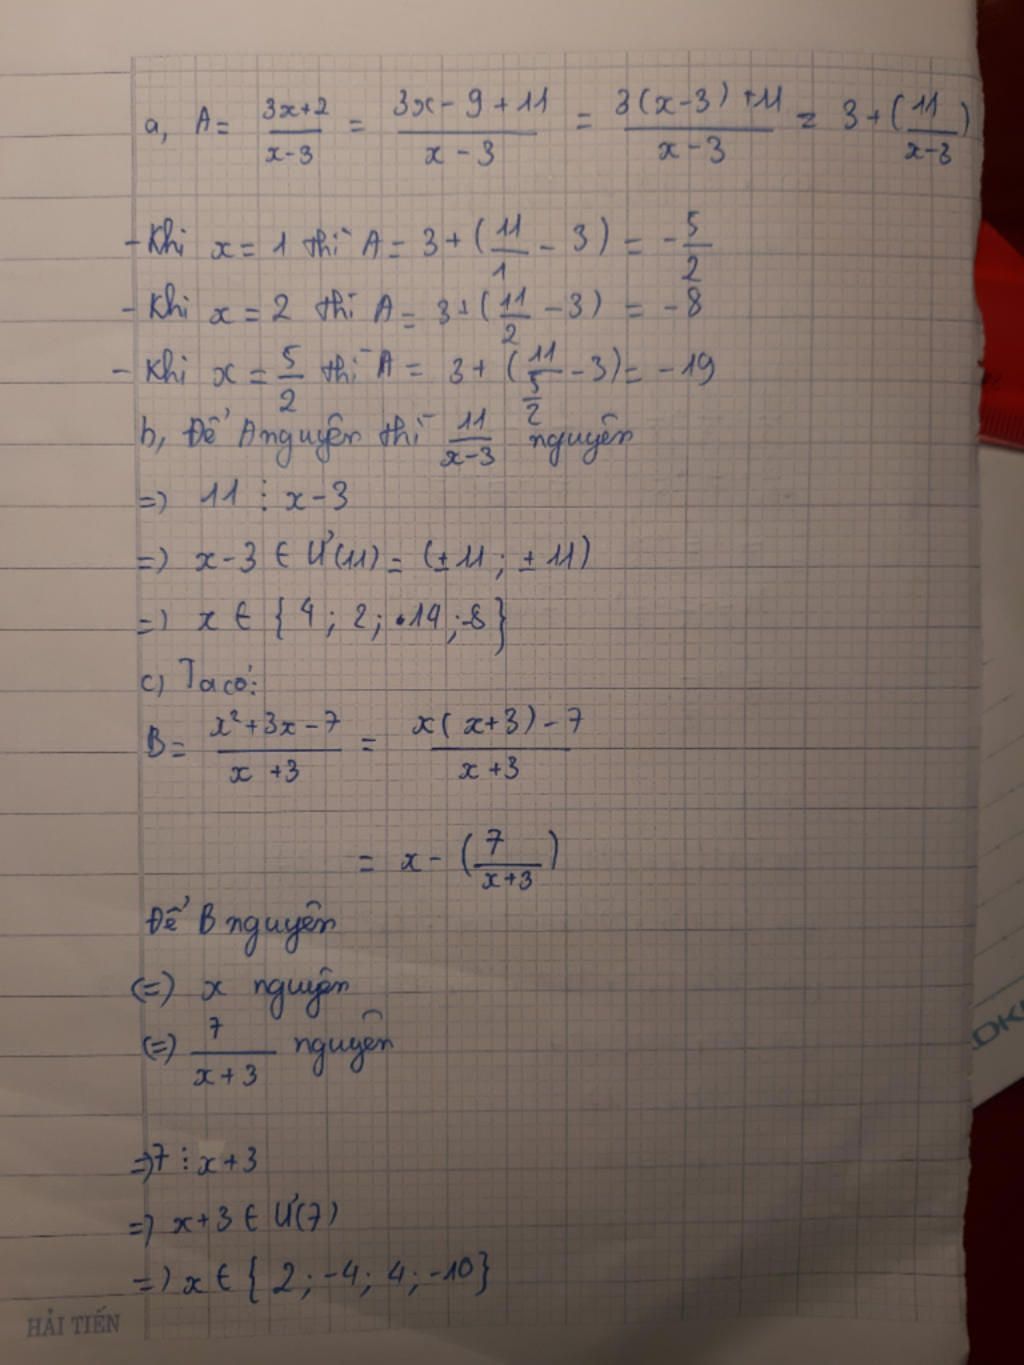 a, A = \frac{3x+2}{x-3} = \frac{3x-9+11}{x-3} = \frac{3(x-3)+11}{x-3} = 3 + (\frac{11}{x-3})
- Khi x = 1 thì A = 3 + (\frac{11}{1} - 3) = -\frac{5}{2}
- Khi x = 2 thì A = 3 + (\frac{11}{2} - 3) = -8
- Khi x = \frac{5}{2} thì A = 3 + (\frac{11}{\frac{5}{2}} - 3) = -19
b, Để A nguyên thì \frac{11}{x-3} nguyên
=) 11 ⋮ x-3
=) x-3 ∈ Ư(11) = (±11; ±11)
=) x ∈ {4; 2; 14; -8}
c) Ta có:
B = \frac{x²+3x-7}{x+3} = \frac{x(x+3)-7}{x+3}
= x - (\frac{7}{x+3})
Để B nguyên
(=) x nguyên
(=) \frac{7}{x+3} nguyên
=) 7 ⋮ x+3
=) x+3 ∈ Ư(7)
=) x ∈ {2; -4; 4; -10}
HẢI TIẾN